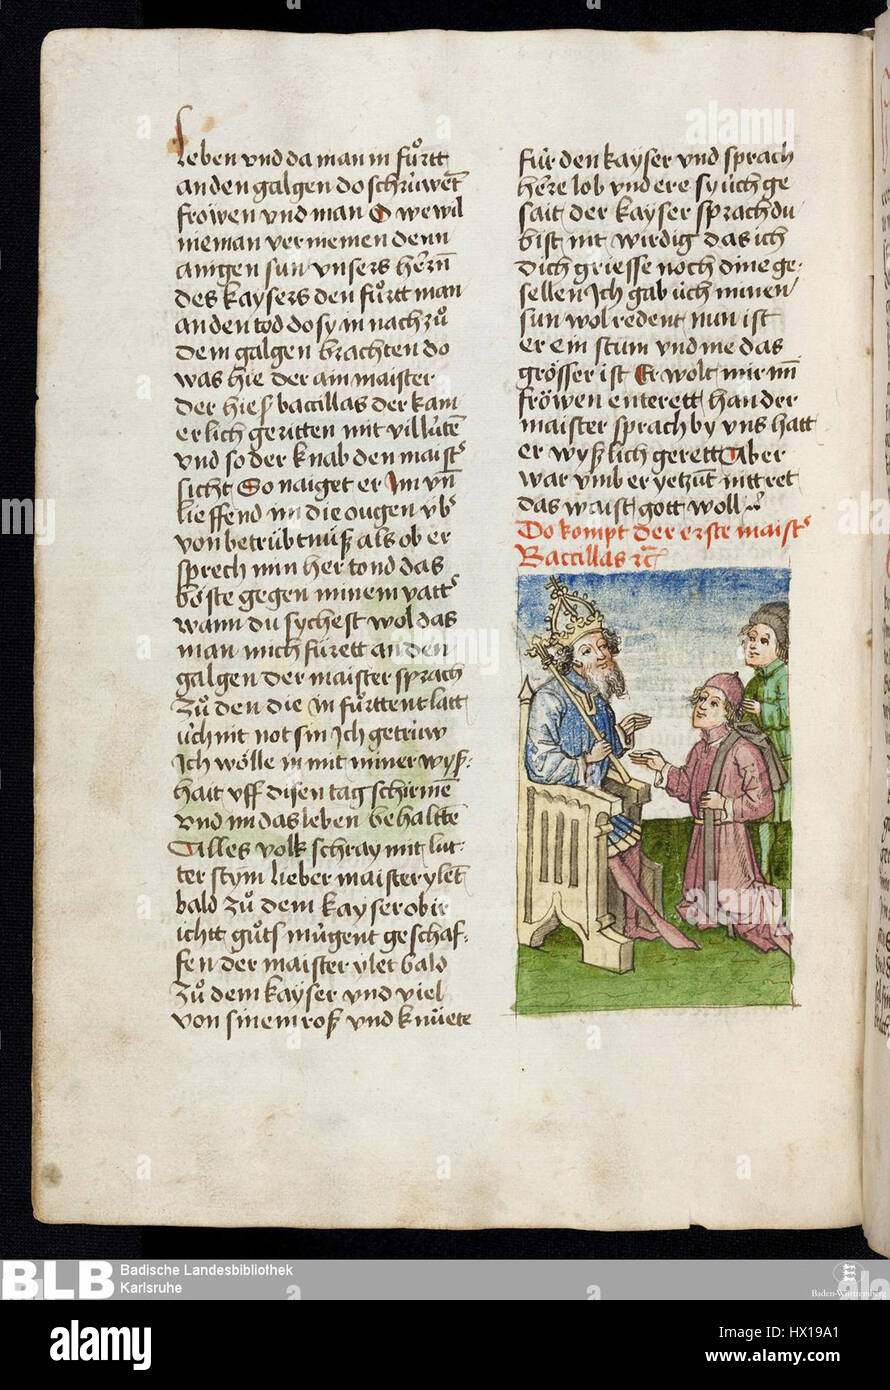 leben vnd da man in fürtt
an den galgen do schrüwent
fröwen vnd man O we wil
nieman vernemen denn
ainigen sun vnsers herrn
des kaysers den fürtt man
an den tod do sy in nach zů
dem galgen brachten do
was hie der am maister
der hieß baccillas der kam
erlich geritten mit vil lüten
vnd so der knab den maister
sicht So naiget er Im vnd
lieffend im die ougen vber
von betrübtnüß als ob er
sprech nun her tond das
böste gegen minem vatter
wann du sychest wol das
man mich fürett an den
galgen der maister sprach
Zů den die in fürttent latt
üch nit not sin Ich getrüw
Ich wölle in mit miner wyß-
hait vff disen tag schirmen
vnd im das leben behalten
Alles volk schray mit lut-
ter stym lieber maister ylet
bald zů dem kayser ob ir
ichtt gůts mügent geschaf-
fen der maister ylet bald
Zů dem kayser vnd viel
von sinem roß vnd knüete
für den kayser vnd sprach
herre lob vnd ere sy üch ge
sait der kayser sprach du
bist nit wirdig das ich
dich griesse noch dine ge-
sellen Ich gab üch minen
sun wol redent nun ist
er ein stum vnd me das
grösser ist Er wolt mir min
fröwen enterett han der
maister sprach by vns hatt
er wyßlich gerett Aber
war vmb er yetzunt nit ret
das waist gott woll
Do kompt der erste maister
Baccillas etc
BLB
Badische Landesbibliothek
Karlsruhe
Baden-Württemberg
alamy
Image ID: HX19A1
www.alamy.com